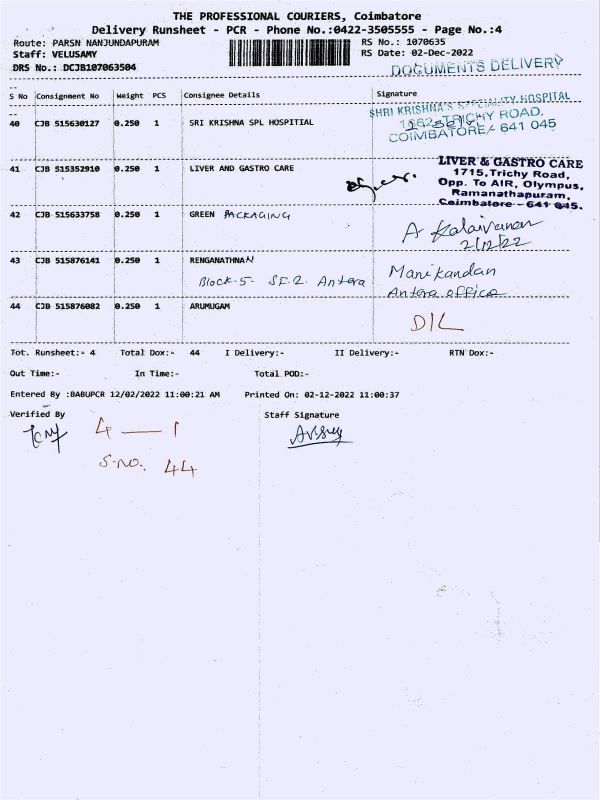 THE PROFESSIONAL COURIERS, Coimbatore
Delivery Runsheet - PCR - Phone No.:0422-3505555 - Page No.:4
Route: PARSN NANJUNDAPURAM RS No.: 1070635
Staff: VELUSAMY RS Date: 02-Dec-2022
DRS No.: DCJB107063504 DOCUMENTS DELIVERY
S No Consignment No Weight PCS Consignee Details Signature
40 CJB 515630127 0.250 1 SRI KRISHNA SPL HOSPITIAL
SHRI KRISHNA'S SPECIALITY HOSPITAL
TRICHY ROAD,
COIMBATORE - 641 045
41 CJB 515352910 0.250 1 LIVER AND GASTRO CARE
LIVER & GASTRO CARE
1715, Trichy Road,
Opp. To AIR, Olympus,
Ramanathapuram,
Coimbatore - 641 045.
42 CJB 515633758 0.250 1 GREEN PACKAGING
A Kalaivanan
2/12/22
43 CJB 515876141 0.250 1 RENGANATHNAN Manikandan
Block-5- SF-2 Antara Antara office
44 CJB 515876082 0.250 1 ARUMUGAM
D/L
Tot. Runsheet:- 4 Total Dox:- 44 I Delivery:- II Delivery:- RTN Dox:-
Out Time:- In Time:- Total POD:-
Entered By :BABUPCR 12/02/2022 11:00:21 AM Printed On: 02-12-2022 11:00:37
Verified By Staff Signature
4 — 1
S.no. 44